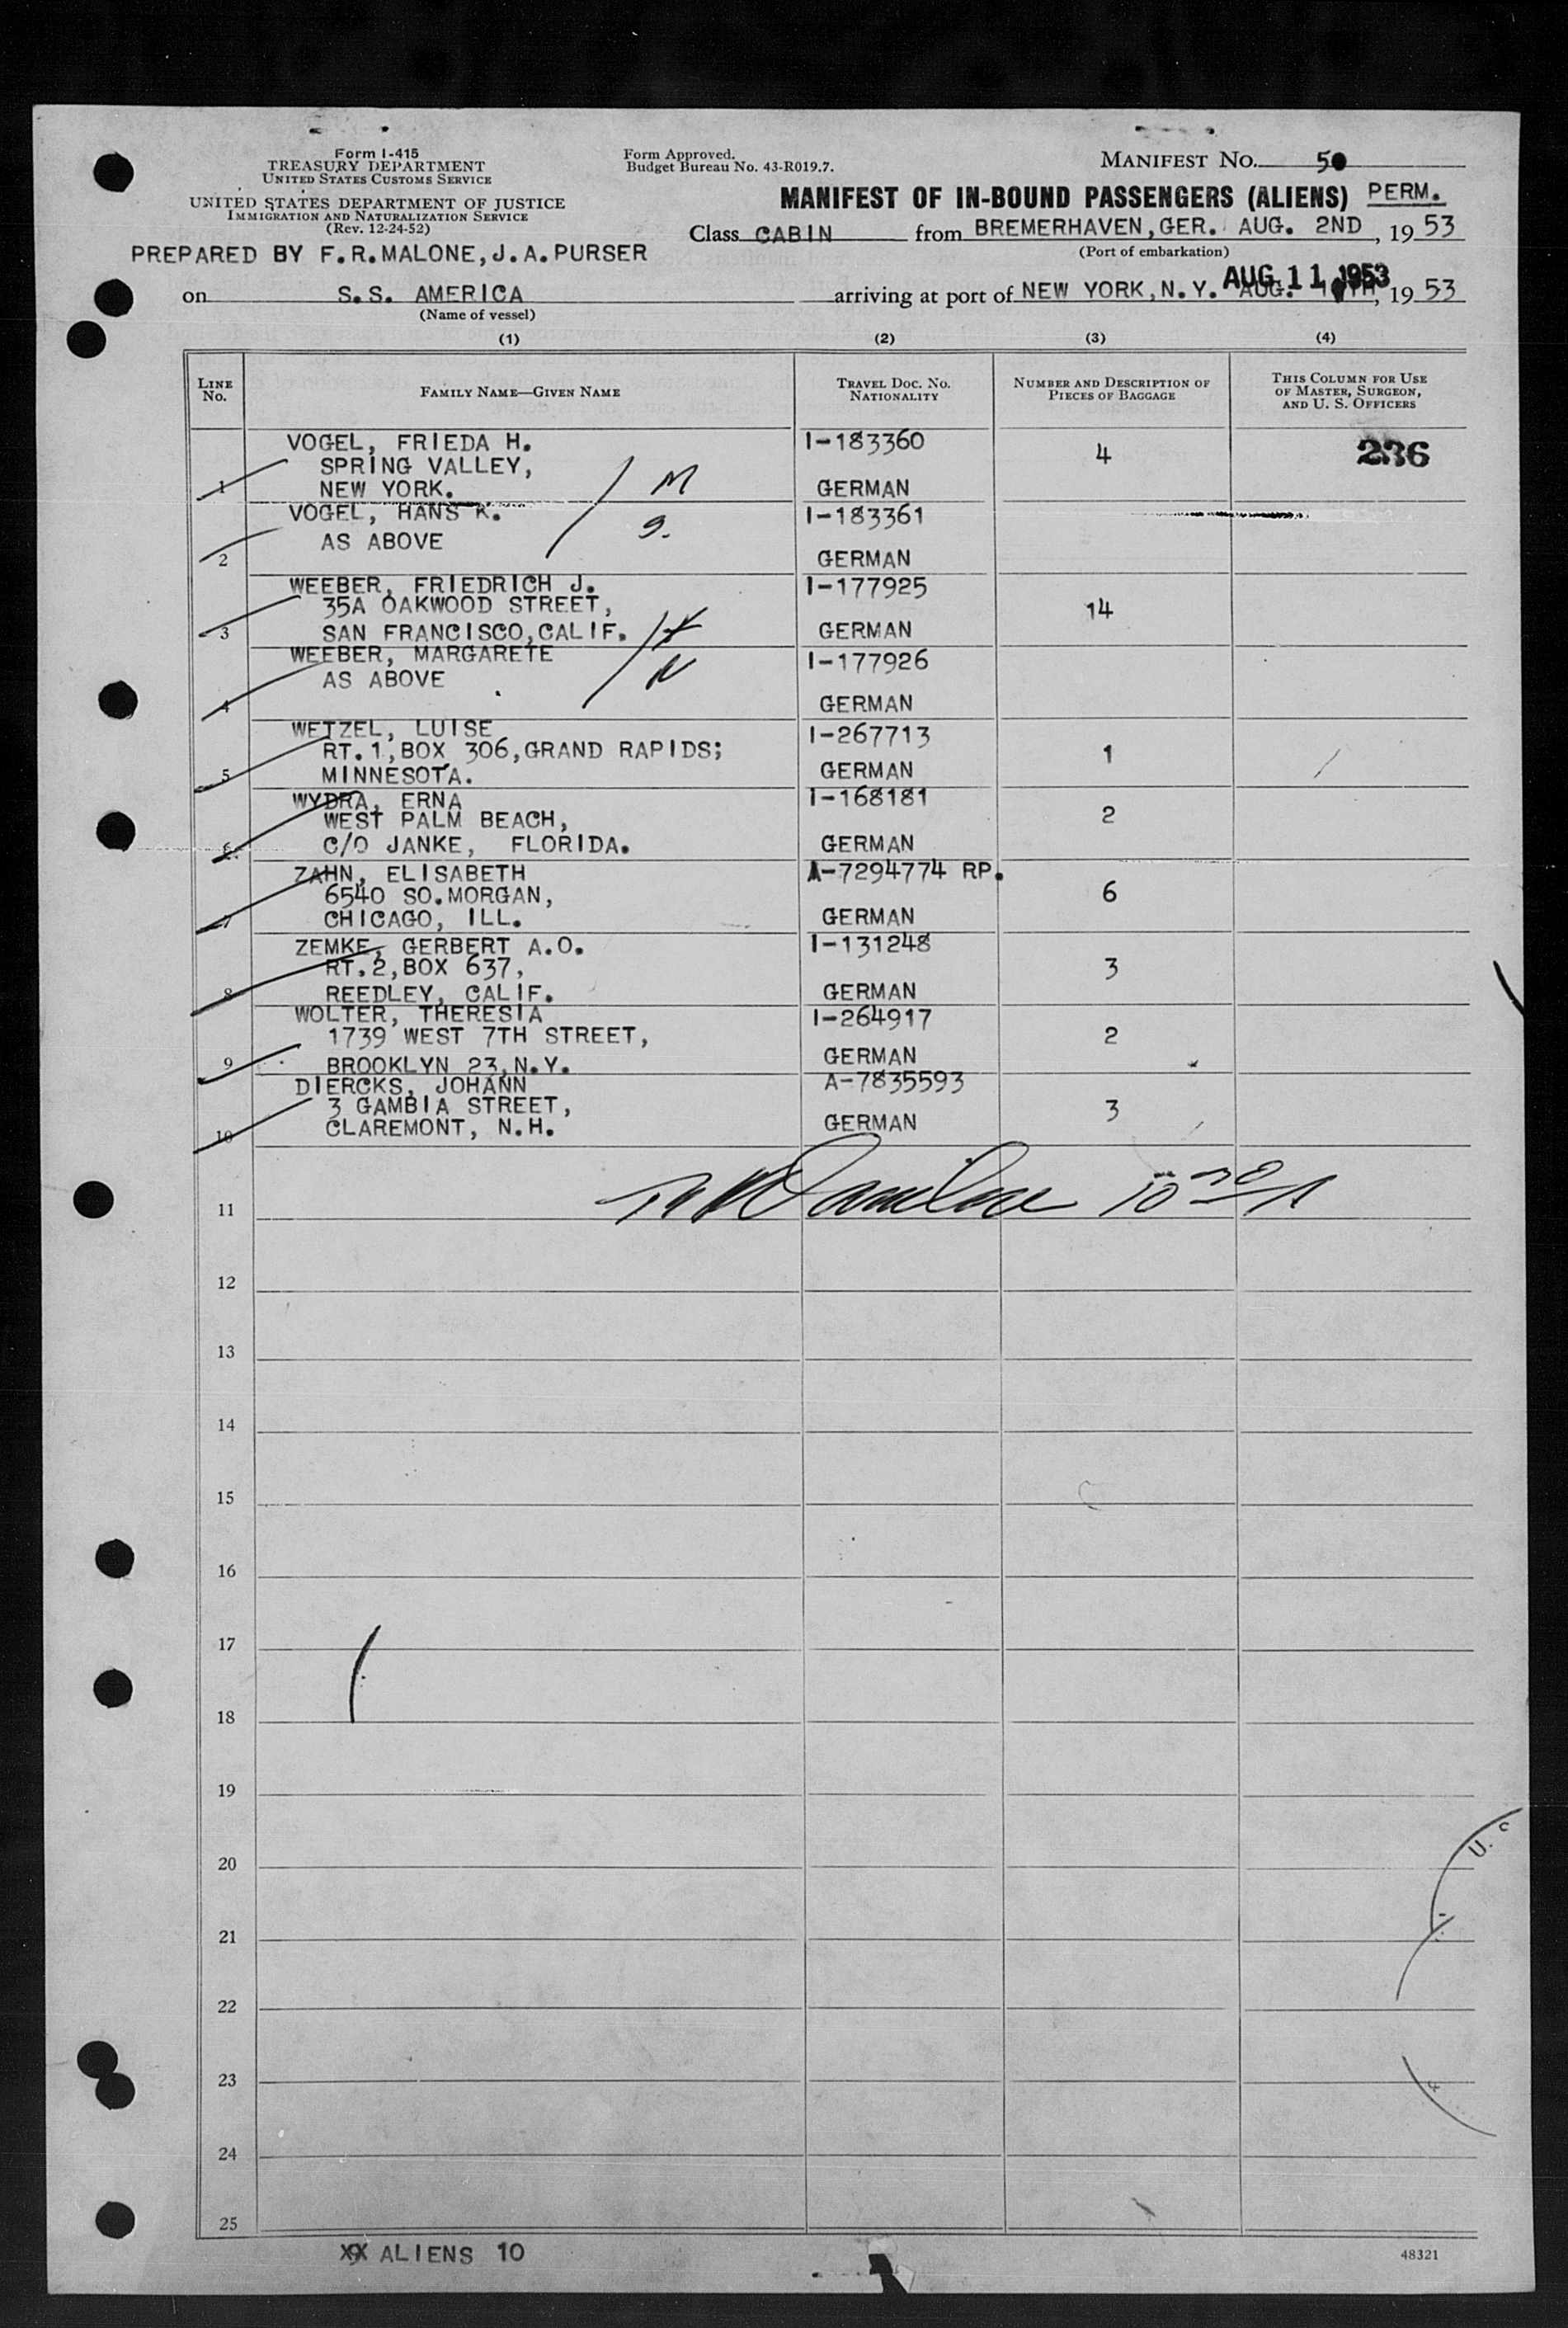 Form I-415
TREASURY DEPARTMENT
UNITED STATES CUSTOMS SERVICE
UNITED STATES DEPARTMENT OF JUSTICE
IMMIGRATION AND NATURALIZATION SERVICE
(Rev. 12-24-52)
PREPARED BY F.R.MALONE,J.A.PURSER
Form Approved.
Budget Bureau No. 43-R019.7.
MANIFEST NO. 50
MANIFEST OF IN-BOUND PASSENGERS (ALIENS) PERM.
Class CABIN from BREMERHAVEN,GER. AUG. 2ND, 1953
(Port of embarkation)
on S.S. AMERICA arriving at port of NEW YORK,N.Y. AUG. AUG 11 1953, 1953
(Name of vessel)
(1) (2) (3) (4)
LINE NO. FAMILY NAME—GIVEN NAME TRAVEL DOC. NO. NATIONALITY NUMBER AND DESCRIPTION OF PIECES OF BAGGAGE THIS COLUMN FOR USE OF MASTER, SURGEON, AND U. S. OFFICERS
VOGEL, FRIEDA H. I-183360 4 236
SPRING VALLEY,
1 NEW YORK. M GERMAN
VOGEL, HANS K. I-183361
AS ABOVE
2 GERMAN
WEEBER, FRIEDRICH J. I-177925
35A OAKWOOD STREET, 14
3 SAN FRANCISCO,CALIF. GERMAN
WEEBER, MARGARETE I-177926
AS ABOVE
4 GERMAN
WETZEL, LUISE I-267713
RT.1,BOX 306,GRAND RAPIDS; 1
5 MINNESOTA. GERMAN
WYDRA, ERNA I-168181
WEST PALM BEACH, 2
6 C/O JANKE, FLORIDA. GERMAN
ZAHN, ELISABETH A-7294774 RP.
6540 SO.MORGAN, 6
7 CHICAGO, ILL. GERMAN
ZEMKE, GERBERT A.O. I-131248
RT.2,BOX 637, 3
8 REEDLEY, CALIF. GERMAN
WOLTER, THERESIA I-264917
1739 WEST 7TH STREET, 2
9 BROOKLYN 23,N.Y. GERMAN
DIERCKS, JOHANN A-7835593
3 GAMBIA STREET, 3
10 CLAREMONT, N.H. GERMAN
11
12
13
14
15
16
17
18
19
20
21
22
23
24
25
ALIENS 10
48321